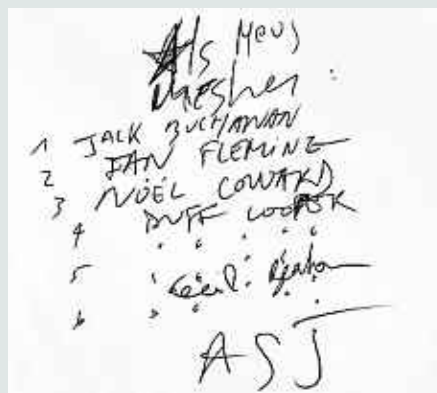 Als Meus
1 JACK BUCHANAN
2 IAN FLEMING
3 NÖEL COWARD
4 DUFF COOPER
5 Cecil Beaton
6
ASJ